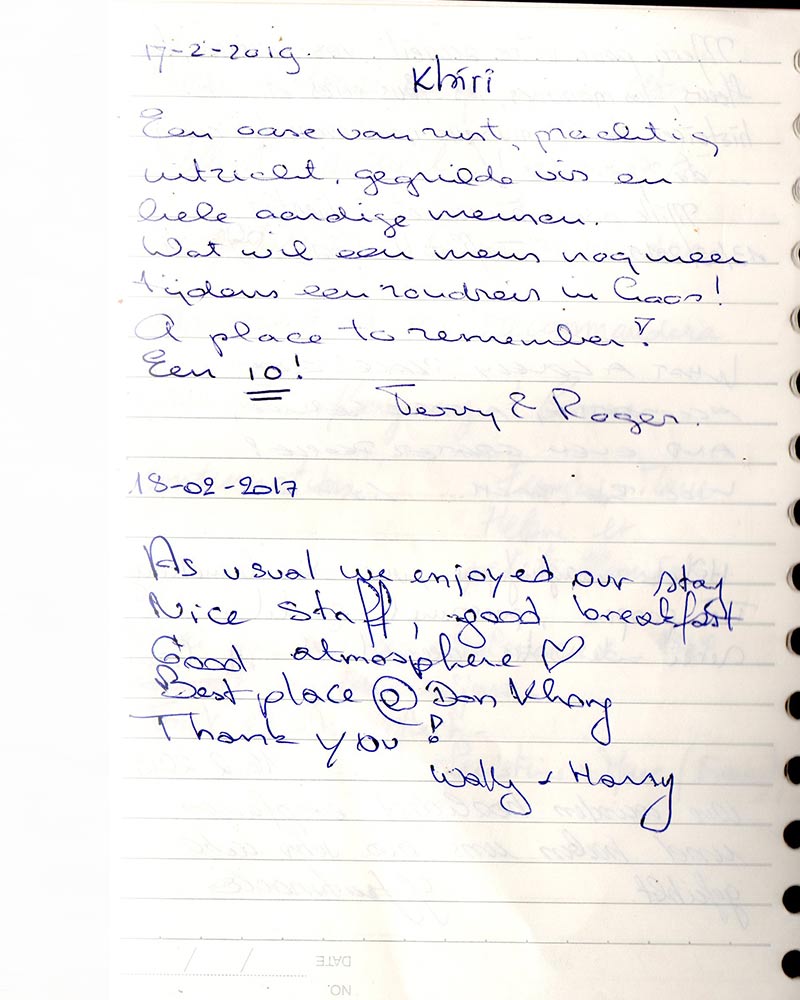 17-2-2019.
Khiri
Een oase van rust, prachtig
uitzicht, gegrilde vis en
hele aardige mensen.
Wat wil een mens nog meer
tijdens een rondreis in Laos!
A place to remember!
Een 10!
Terry & Roger.
18-02-2017
As usual we enjoyed our stay
Nice Staff, good breakfast
Good atmosphere ♡
Best place @ Don Khong
Thank you!
Wally + Harry
DATE / /
NO.